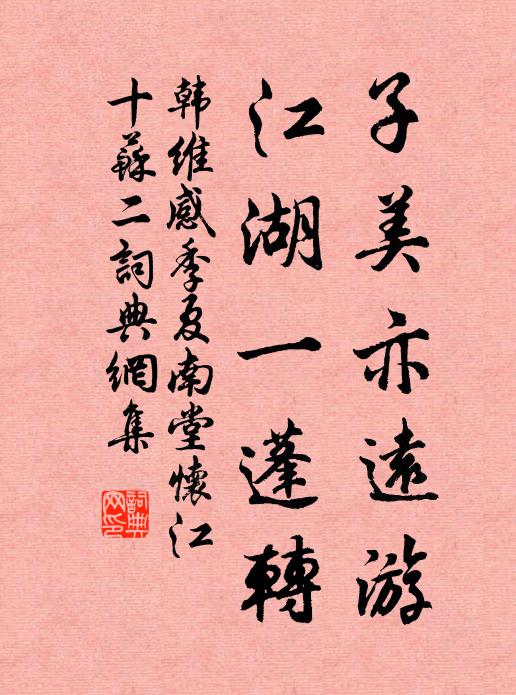 子美亦遠游
江湖一蓬轉
韩維感季夏南堂懷江
十蘇二詞典網集
詞典網印